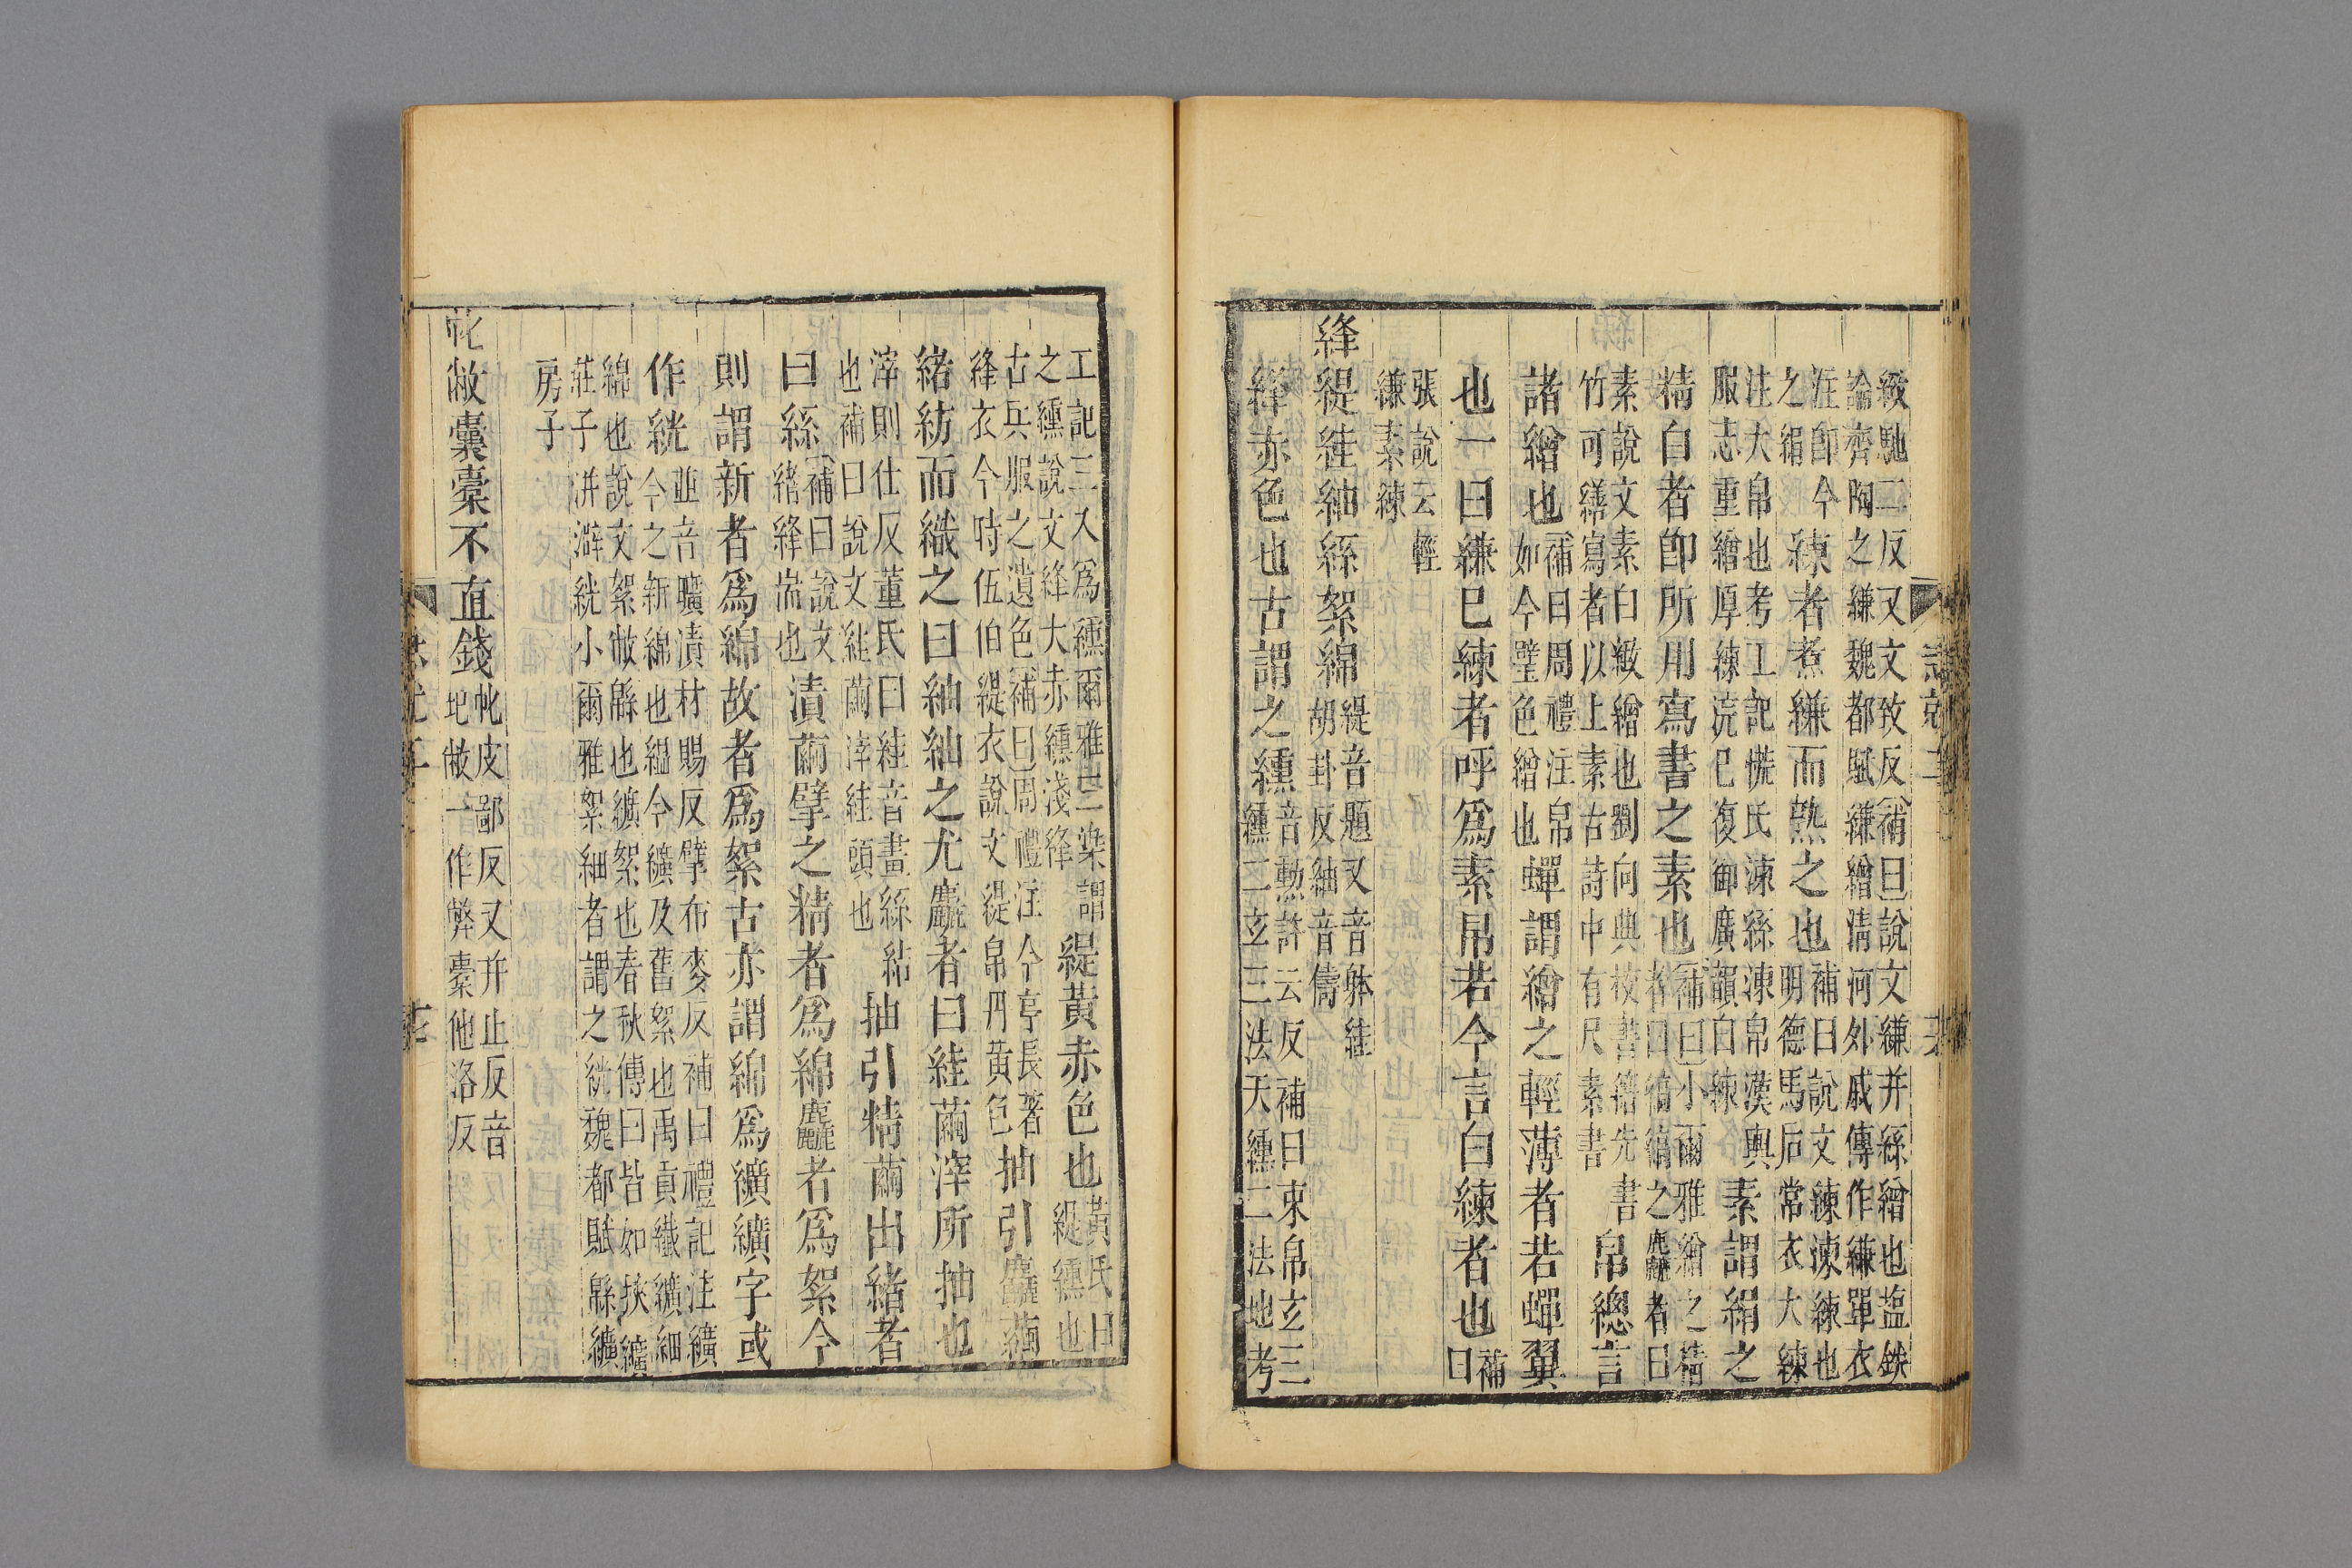 緻馳二反又文致反補曰說文縑并絲繒也塩鉄
論齊陶之縑魏都賦縑繒清河外戚傳作縑單衣
注卽今
之絹
練者煮縑而熟之也
補曰說文練湅練也
明德馬后常衣大練
注大帛也考工記㡛氏湅絲湅帛漢輿
服志重繒厚練浣巳復御廣韻白練
素謂絹之
精白者卽所用寫書之素也
補曰小爾雅繒之精
者曰縞縞之麤者曰
素說文素白緻繒也劉向典校書籍先書
竹可繕寫者以上素古詩中有尺素書
帛總言
諸繒也
補曰周禮注帛
如今璧色繒也
蟬謂繒之輕薄者若蟬翼
也一曰縑巳練者呼爲素帛若今言白練者也
補
曰
張說云輕
縑素練
絳緹絓紬絲絮綿
緹音題又音躰絓
胡卦反紬音儔
絳赤色也古謂之纁
音勲許云反補曰束帛玄三
纁二玄三法天纁二法地考
工記三入爲纁爾雅三染謂
之纁說文絳大赤纁淺絳
緹黃赤色也
黃氏曰
緹纁也
古兵服之遺色補曰周禮注今亭長著
絳衣今時伍伯緹衣說文緹帛丹黃色
抽引麤繭
緒紡而織之曰紬紬之尤麤者曰絓繭滓所抽也
滓則仕反董氏曰絓音畫絲結
也補曰說文絓繭滓絓頭也
抽引精繭出緒者
曰絲
補曰說文
緒絳耑也
漬繭擘之精者爲綿麤者爲絮今
則謂新者爲綿故者爲絮古亦謂綿爲纊纊字或
作絖
並音曠漬材賜反擘布麥反補曰禮記注纊
今之新綿也緼今纊及舊絮也禹貢纖纊細
綿也說文絮敝緜也纊絮也春秋傳曰皆如挾纊
莊子洴澼絖小爾雅絮細者謂之絖魏都賦緜纊
房子
帔敝囊橐不直錢
帔皮鄙反又并止反音
圮敝一作弊橐他洛反